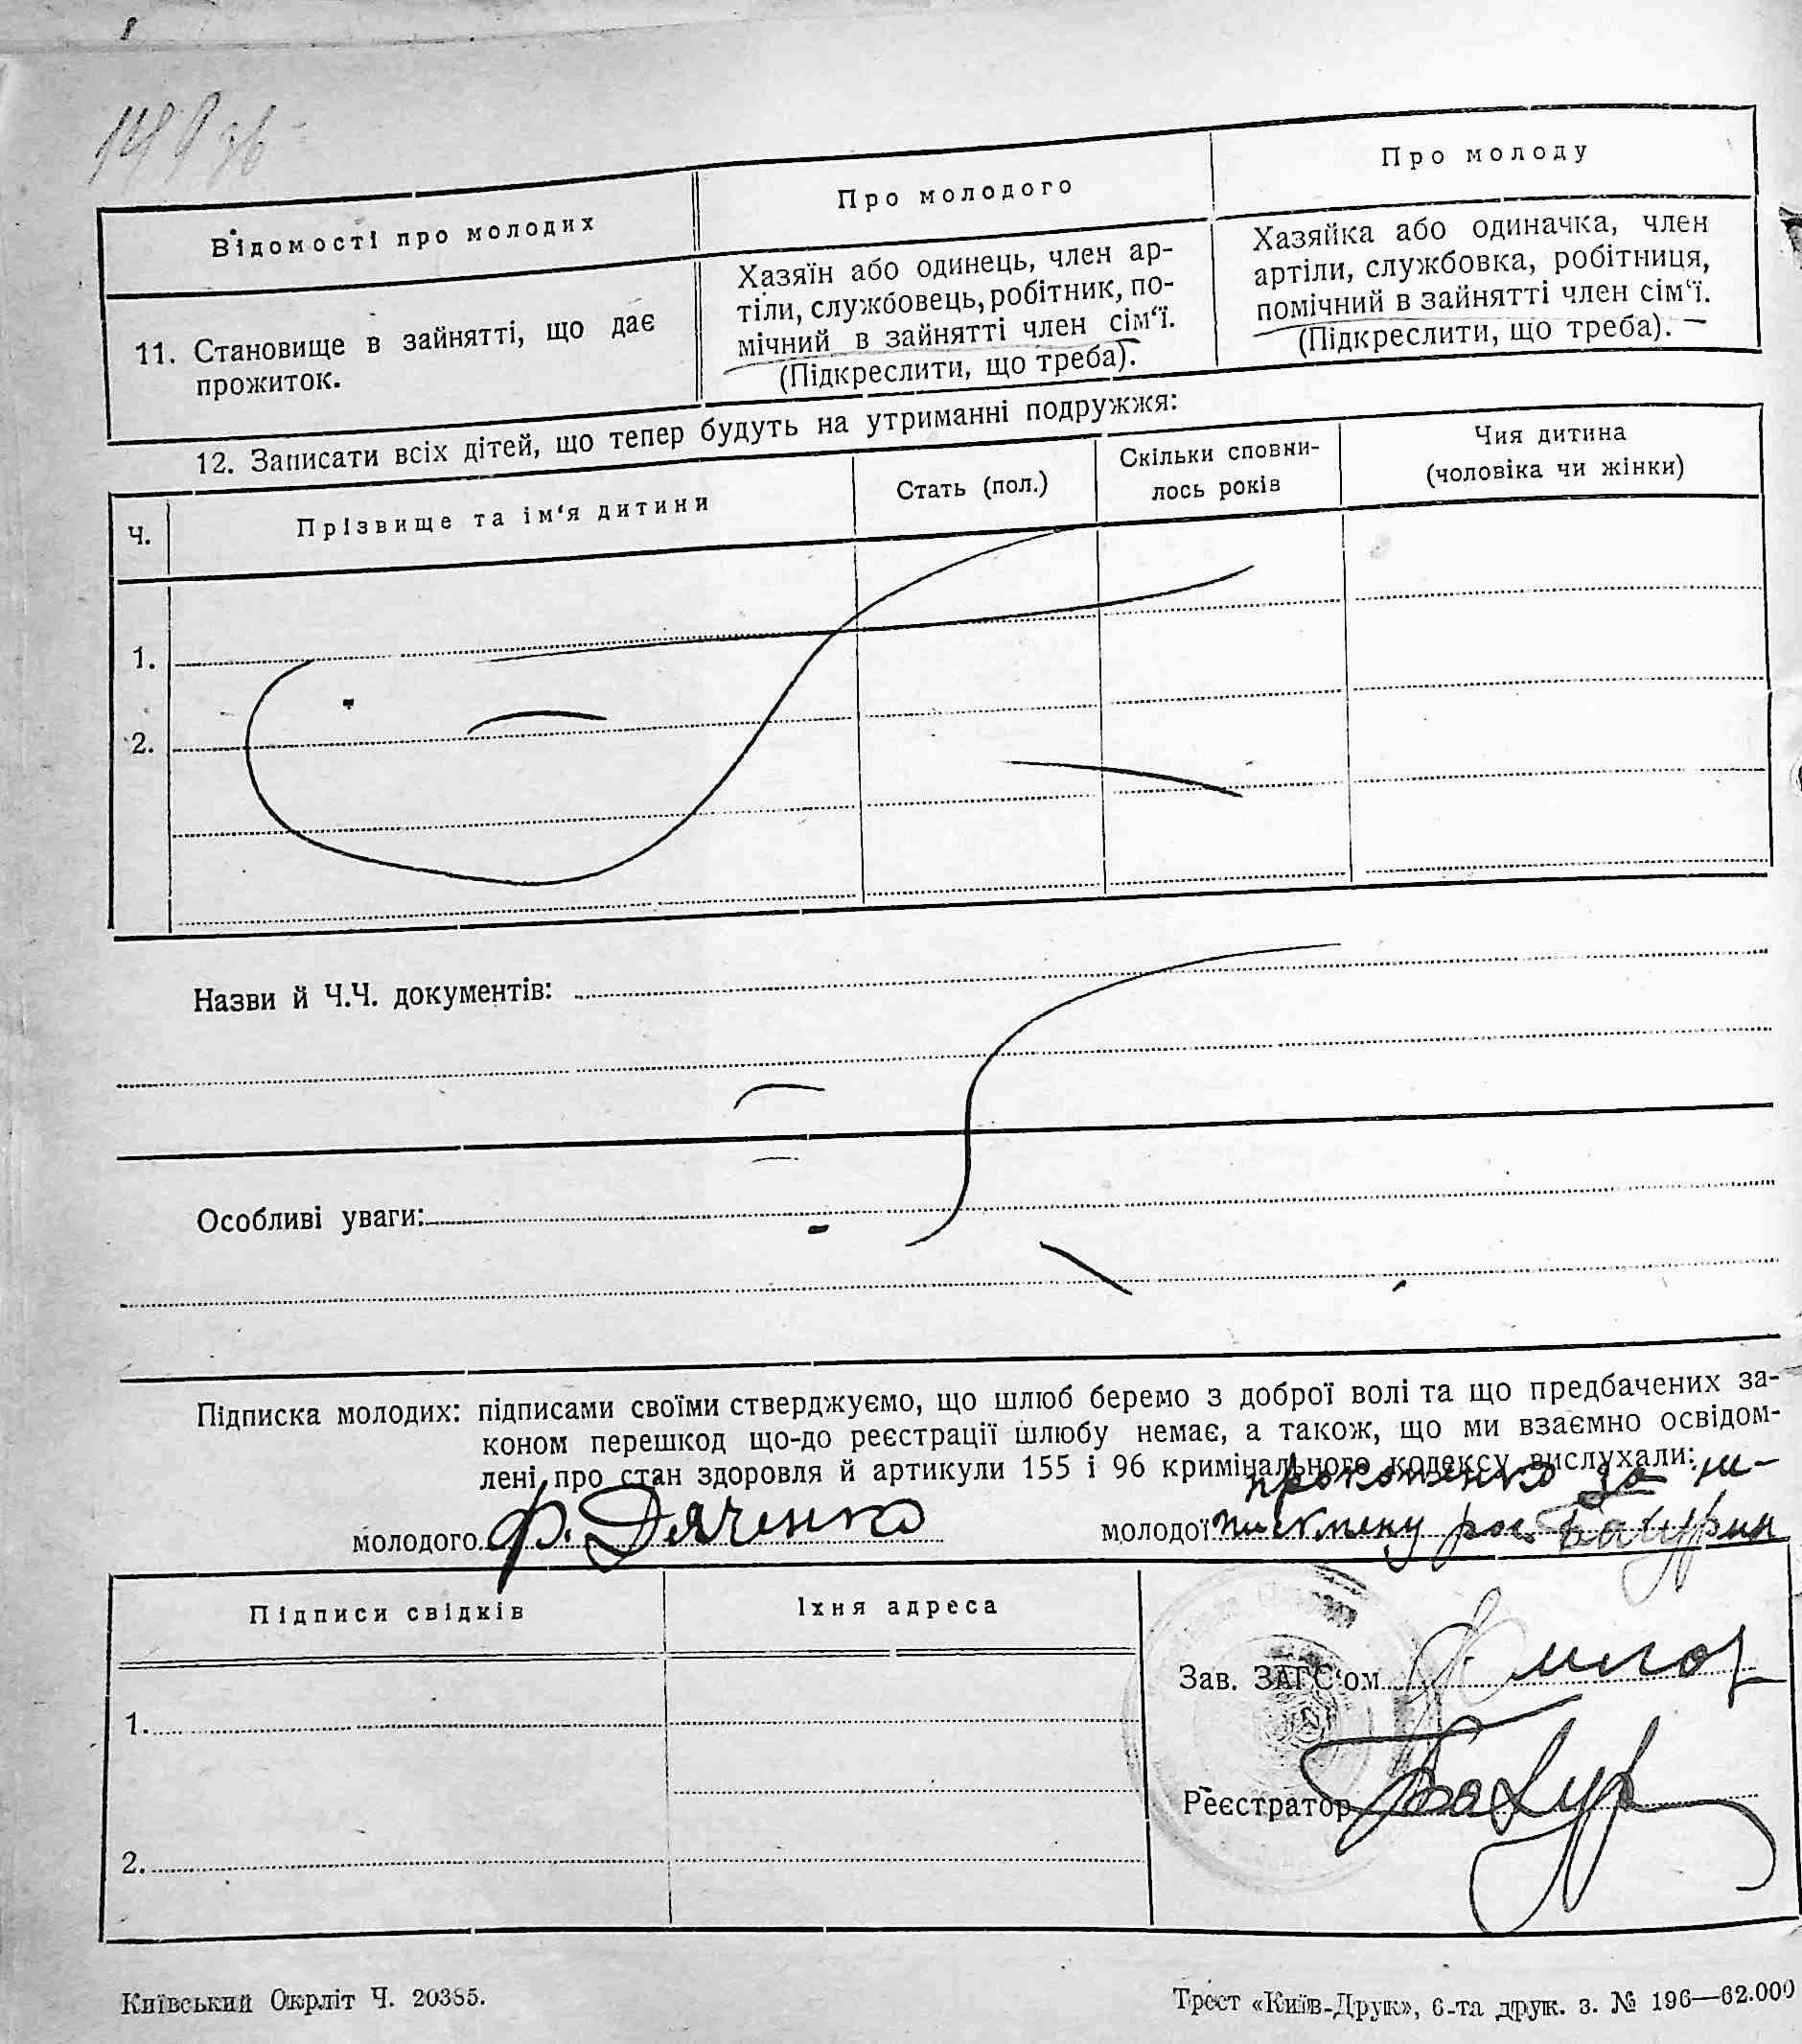 149 зв
Відомості про молодих
Про молодого
Про молоду
11. Становище в зайнятті, що дає
прожиток.
Хазяїн або одинець, член ар-
тіли, службовець, робітник, по-
мічний в зайнятті член сім‘ї.
(Підкреслити, що треба).
Хазяйка або одиначка, член
артіли, службовка, робітниця,
помічний в зайнятті член сім‘ї.
(Підкреслити, що треба).
12. Записати всіх дітей, що тепер будуть на утриманні подружжя:
Ч.
Прізвище та ім‘я дитини
Стать (пол.)
Скільки сповни-
лось років
Чия дитина
(чоловіка чи жінки)
1.
2.
Назви й Ч.Ч. документів:
Особливі уваги:
Підписка молодих: підписами своїми стверджуємо, що шлюб беремо з доброї волі та що предбачених за-
коном перешкод що-до реєстрації шлюбу немає, а також, що ми взаємно освідом-
лені про стан здоровля й артикули 155 і 96 кримінального кодексу вислухали:
за не-
молодого Ф. Дяченко
молодої письмену рос. Бахурин
Підписи свідків
Їхня адреса
1.
2.
Зав. ЗАГС‘ом
Реєстратор Бахур
Київський Окрліт Ч. 20385.
Трест «Київ-Друк», 6-та друк. з. № 196—62.000